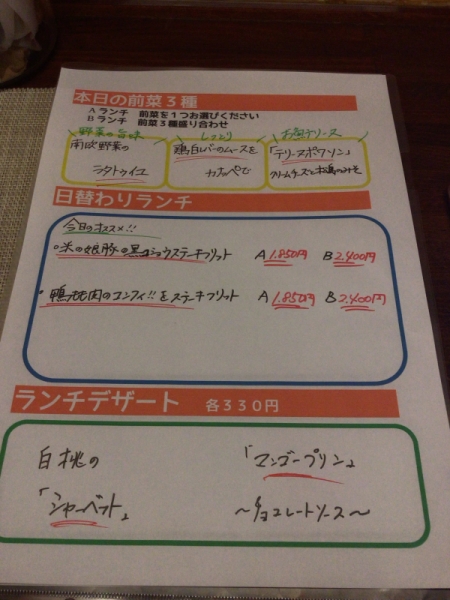 本日の前菜３種
Ａランチ 前菜を１つお選びください
Ｂランチ 前菜３種盛り合わせ
野菜の旨味 しっとり お魚テリソース
南欧野菜の 鶏白レバーのムースを 「テリーヌポワソン」
ラタトゥイユ カナッペで クリームチーズと
日替わりランチ
今日のオススメ!!
米の娘豚の黒コショウステーキフリット A 1.850円 B 2.400円
鴨もも肉のコンフィ!!をステーキフリット A 1.850円 B 2.400円
ランチデザート 各３３０円
白桃の 「マンゴープリン」
「シャーベット」 〜チョコレートソース〜